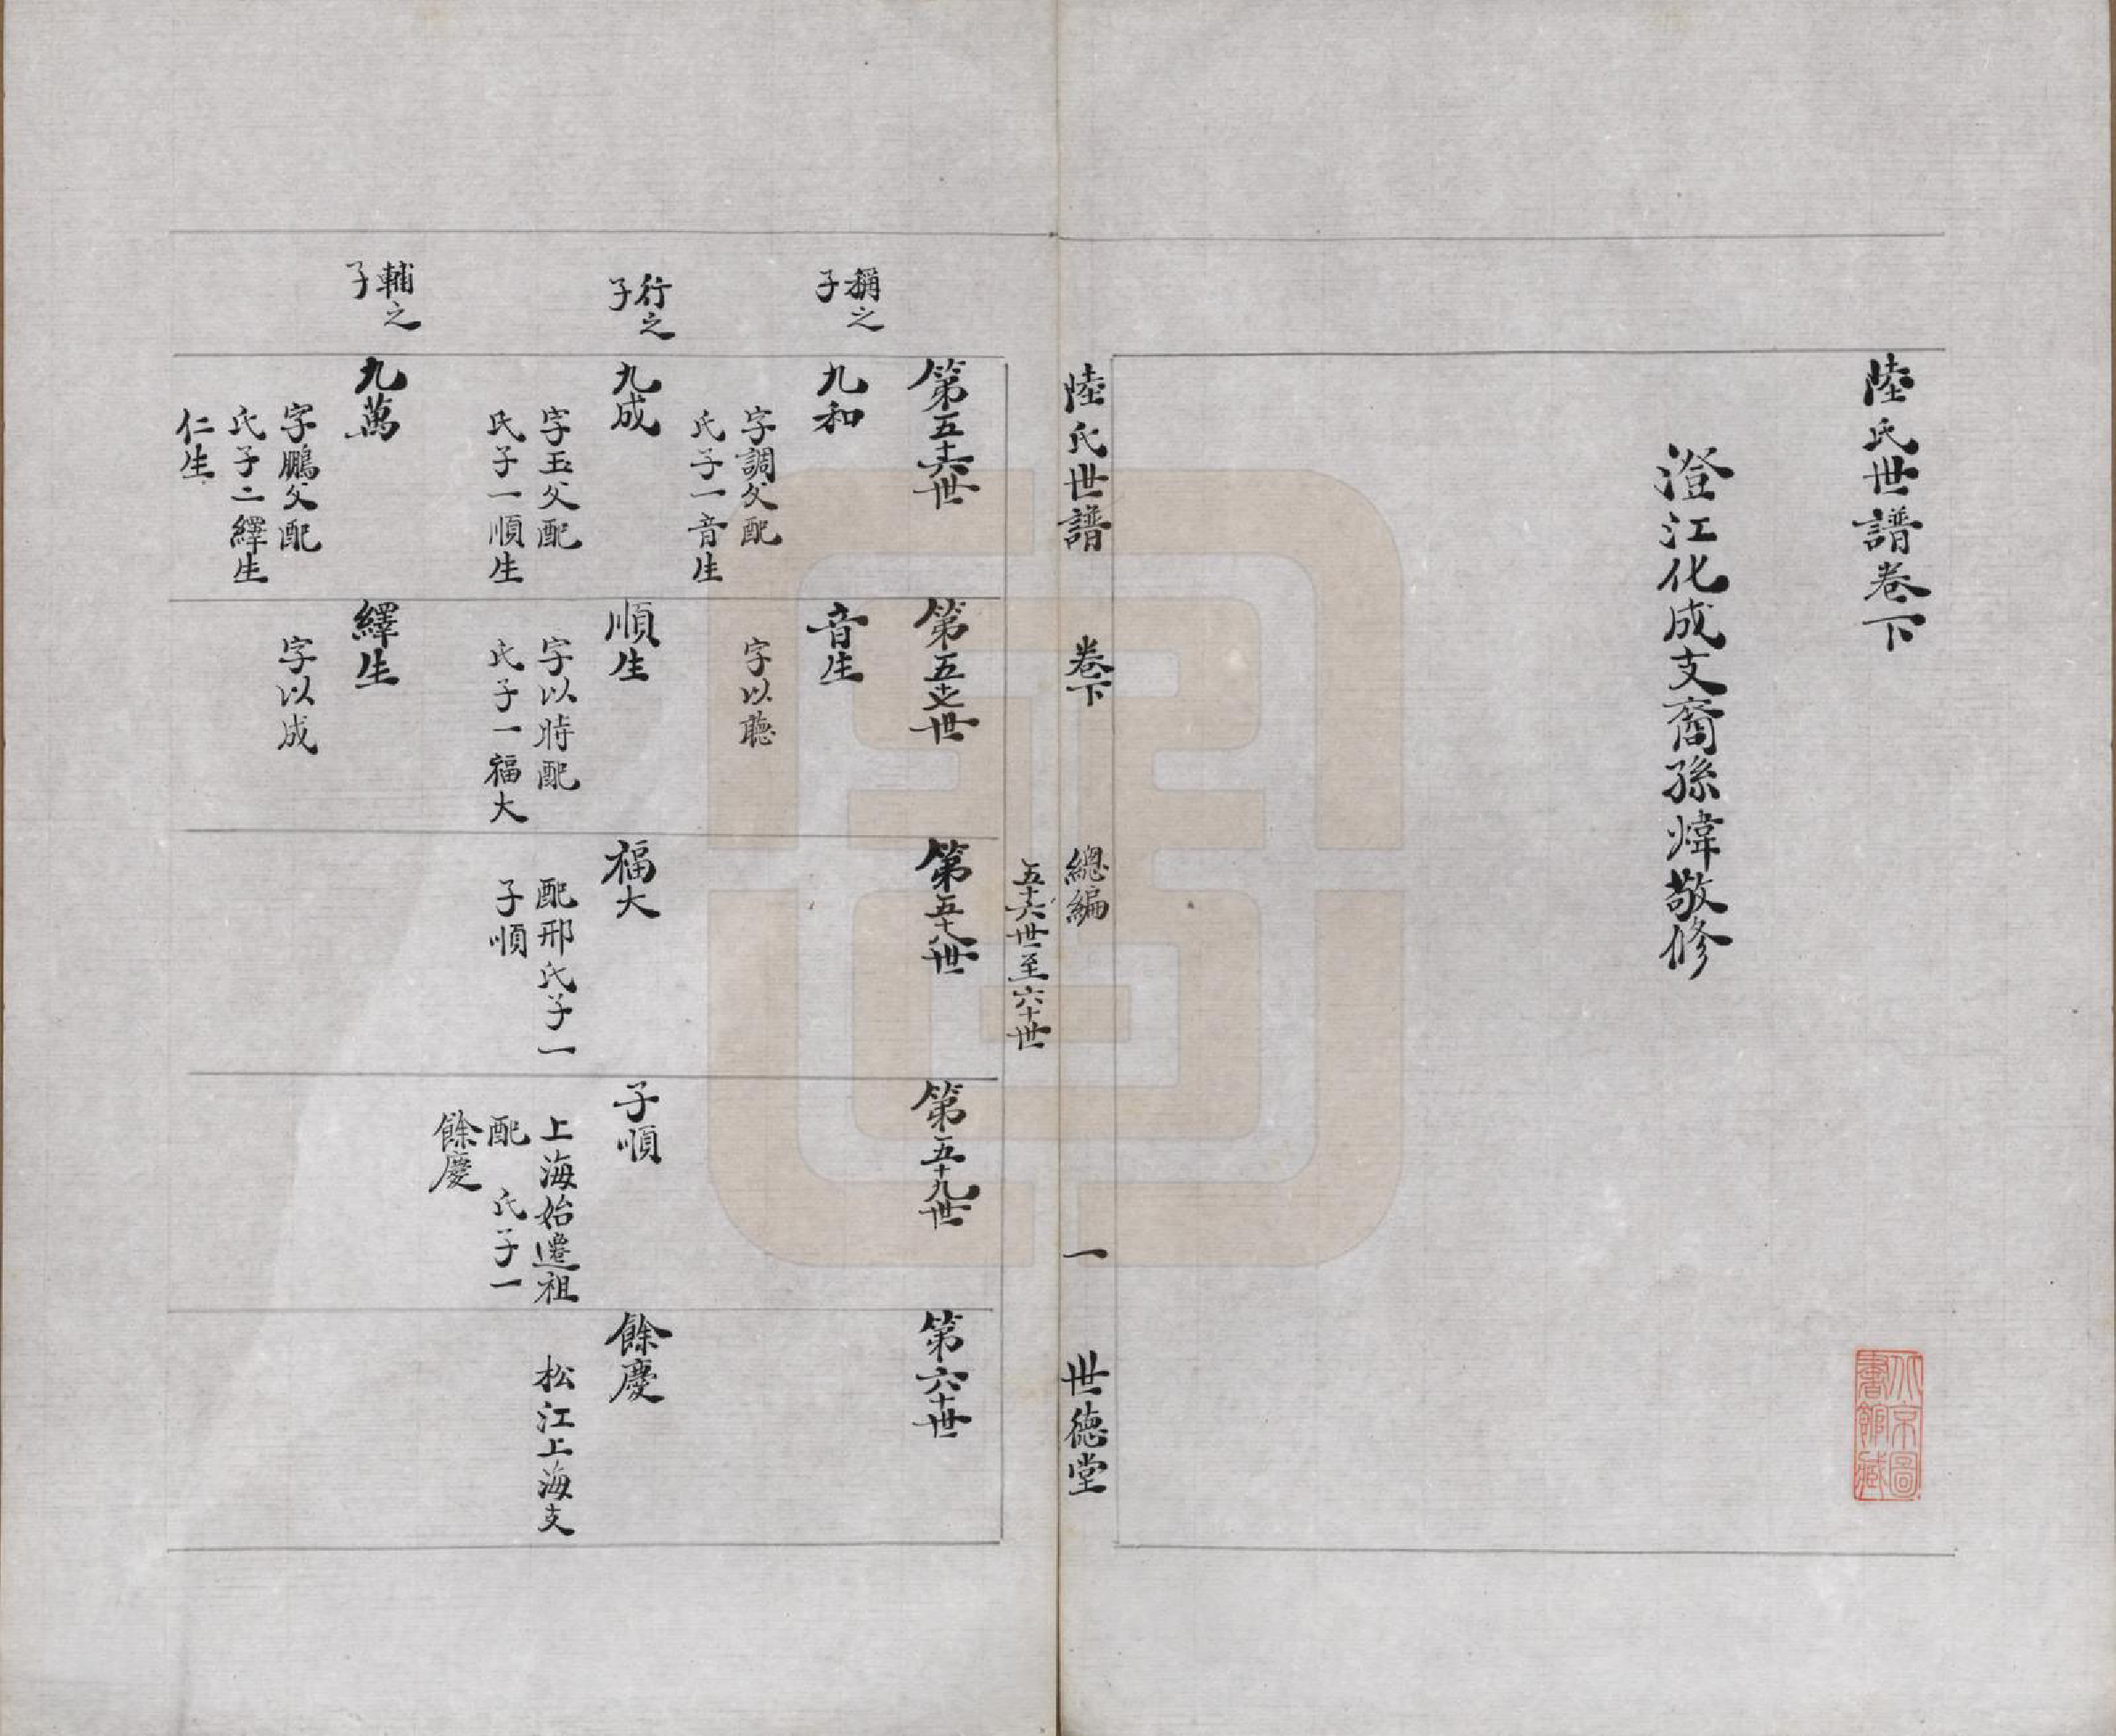 陸氏世譜卷下
澄江化成支裔孫煒敬修
北京圖
書館藏
陸氏世譜
卷下
總編
五十六世至六十世
一
世德堂
第五十六世
稱之
子
九和
字調父配
氏子一音生
行之
子
九成
字玉父配
氏子一順生
輔之
子
九萬
字鵬父配
氏子二繹生
仁生
第五十七世
音生
字以聽
順生
字以時配
氏子一福大
繹生
字以成
第五十八世
福大
配邢氏子一
子順
第五十九世
子順
上海始遷祖
配　氏子一
餘慶
第六十世
餘慶
松江上海支